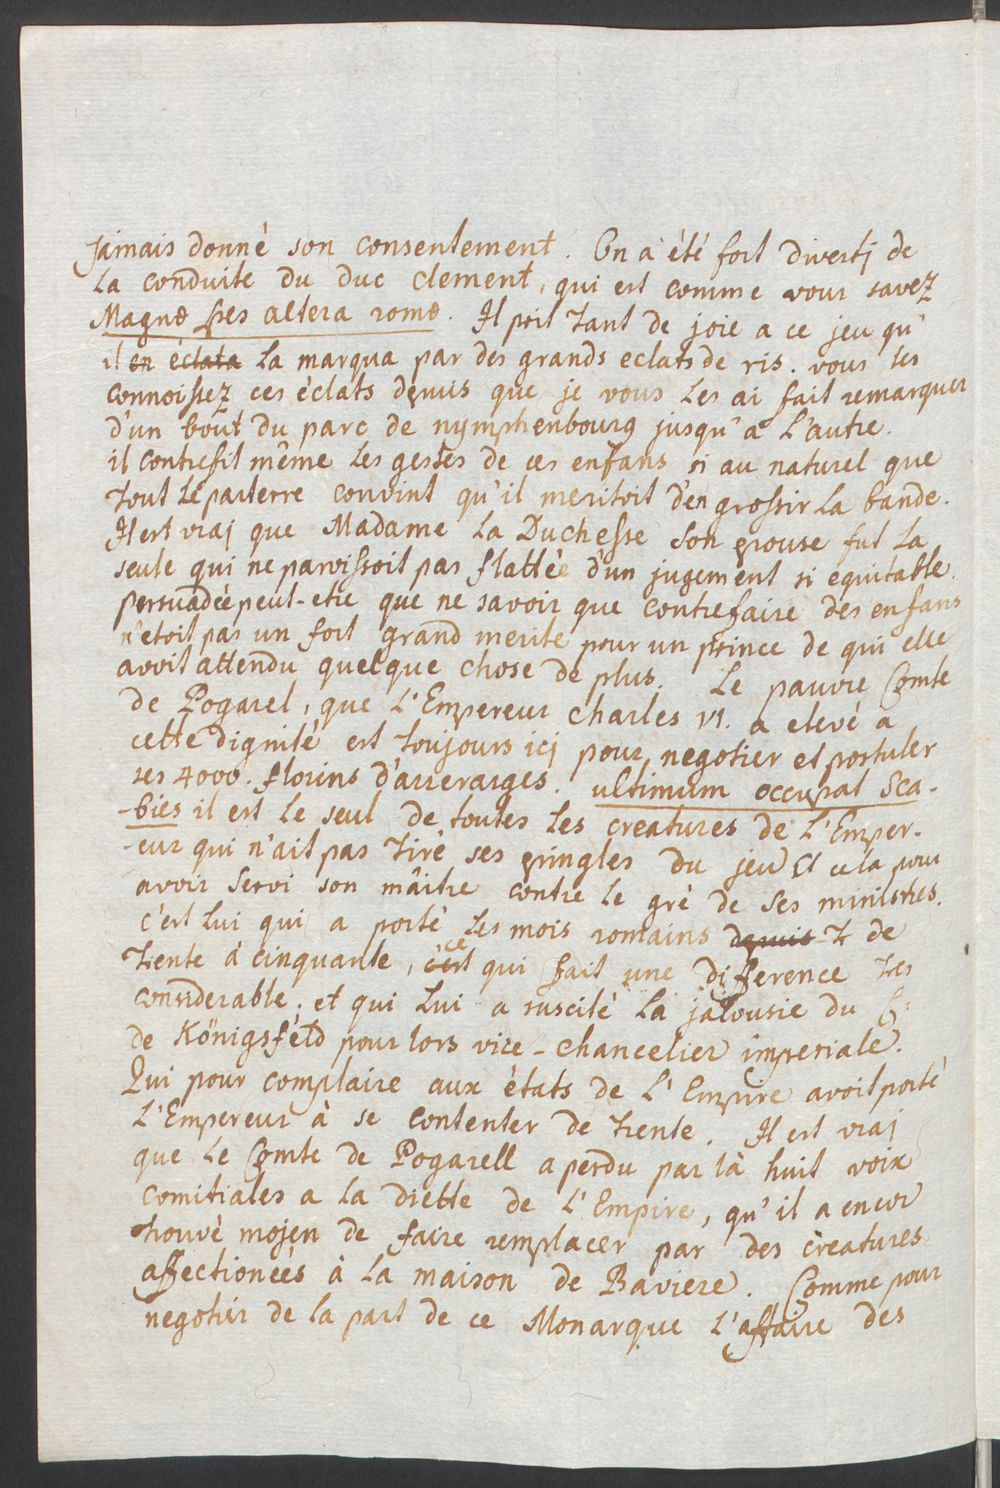 jamais donné son consentement. On a été fort divertj de
la conduite du duc clement, qui est comme vous savez
Magnæ spes altera romæ. Il prit tant de joie a ce jeu qu'
il en éclata la marqua par des grands eclats de ris. vous les
connoissez ces éclats depuis que je vous les ai fait remarquer
d'un bout du parc de nymphenbourg jusqu'a L'autre.
il contrefit même les gestes de ces enfans si au naturel que
tout le parterre convint qu'il meritoit d'en grossir la bande.
Il est vraj que Madame la Duchesse son epouse fut la
seule qui ne paroissoit pas flattée d'un jugement si equitable.
persuadée peut-etre que ne savoir que contrefaire des enfans
n'etoit pas un fort grand merite pour un prince de qui elle
avoit attendu quelque chose de plus. Le pauvre Comte
de Pogarel, que L'Empereur Charles VI. a elevé a
cette dignité est toujours icj pour negotier et postuler
ses 4000. florins d'arrerages. ultimum occupat Sca-
-bies il est le seul de toutes les creatures de L'Emper-
-eur qui n'ait pas tiré ses epingles du jeu et cela pour
avoir servi son mâitre contre le gré de ses ministres.
c'est lui qui a porté les mois romains depuis tr de
trente à cinquante, c'est ce qui fait une difference tres
considerable. et qui lui a suscité la jalousie du C:
de Königsféld pour lors vice-chancelier imperiale.
Qui pour complaire aux états de L'Empire avoit porté
L'Empereur à se contenter de trente. Il est vraj
que le Comte de Pogarell a perdu par là huit voix
comitiales a la diette de L'Empire, qu'il a encor
trouvé mojen de faire remplacer par des créatures
affectionées à la maison de Baviere. Comme pour
negotier de la part de ce Monarque L'affaire des